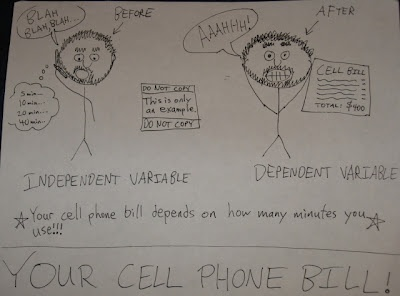 BLAH
BLAH, BLAH...
BEFORE
AFTER
AAAHHH!
5 min...
10 min...
20 min...
40 min...
DO NOT COPY
This is only
an example.
DO NOT COPY
CELL BILL
TOTAL: $400
INDEPENDENT VARIABLE
DEPENDENT VARIABLE
Your cell phone bill depends on how many minutes you
use!!!
YOUR CELL PHONE BILL!